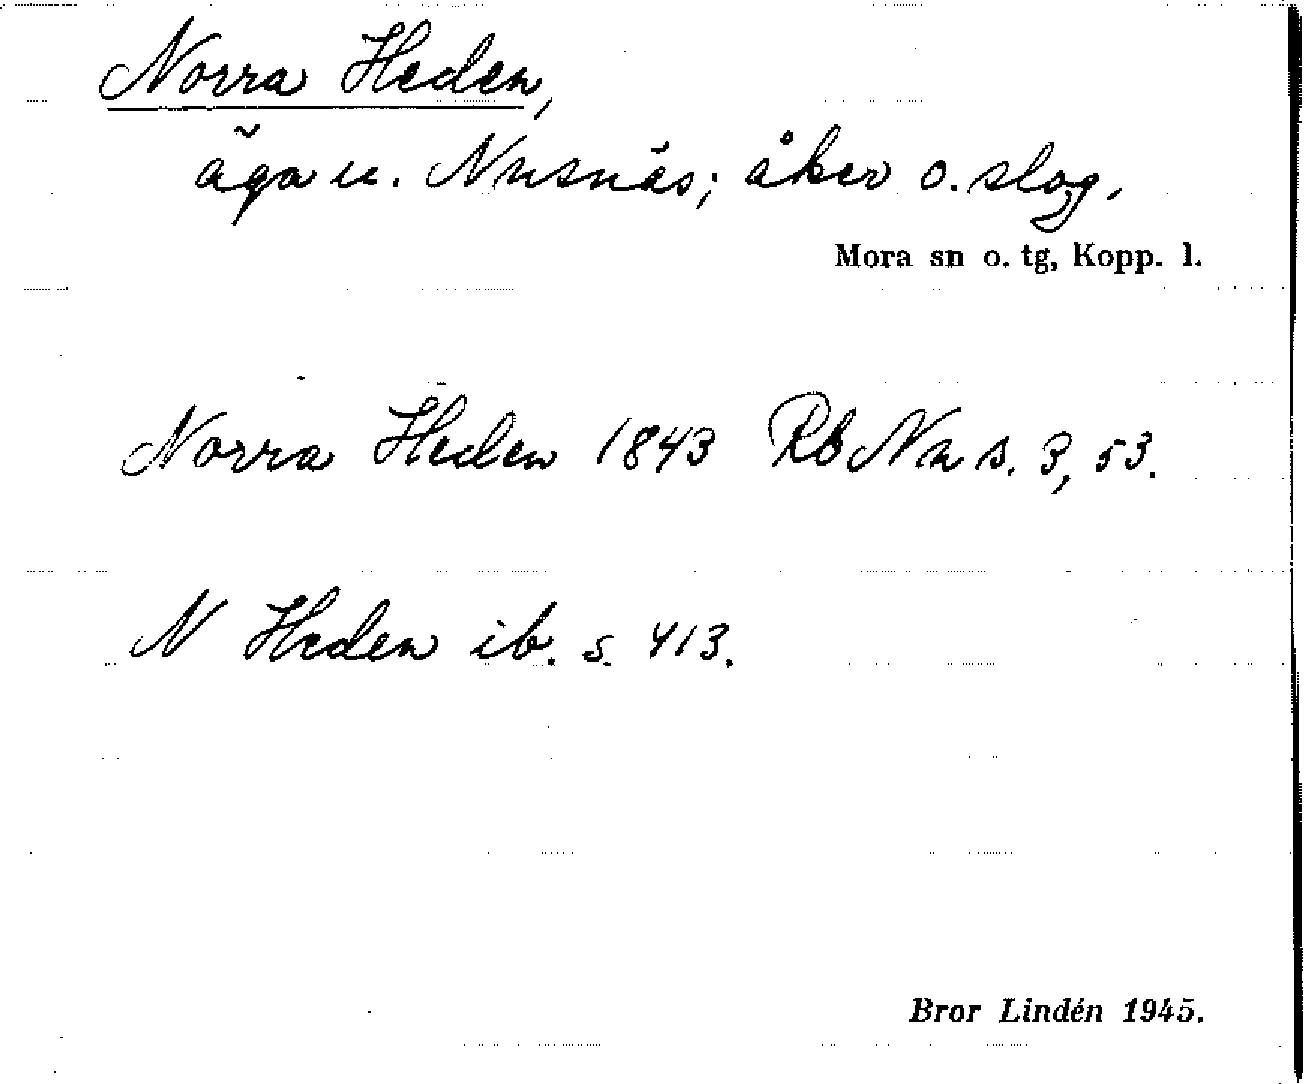 Norra Heden,
äga u. Nusnäs; åker o. slog.
Mora sn o. tg, Kopp. l.
Norra Heden 1843 Rb Na s. 3, 53.
N Heden ib. s. 413.
Bror Lindén 1945.